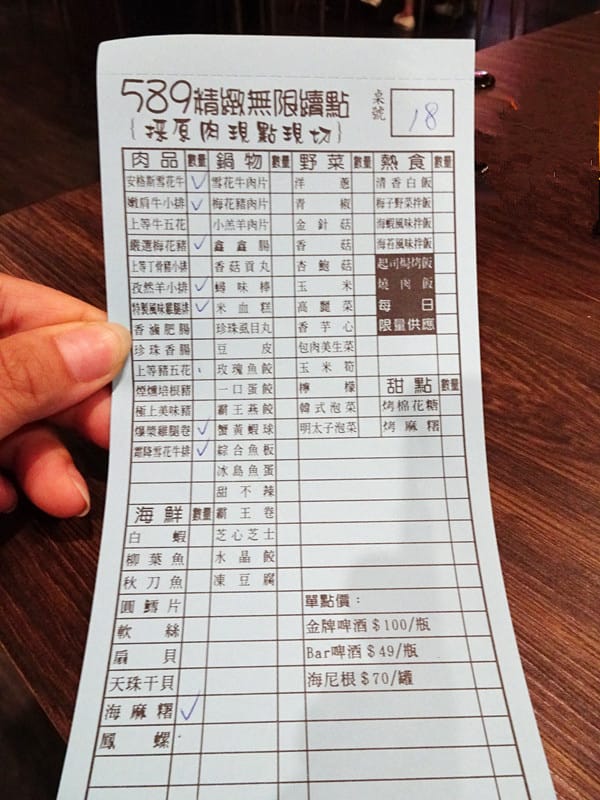 589精緻無限續點
{採原肉現點現切}
桌號 18
肉品 數量 鍋物 數量 野菜 數量 熱食 數量
安格斯雪花牛 ✓ 雪花牛肉片 洋蔥 清香白飯
嫩肩牛小排 ✓ 梅花豬肉片 青椒 梅子野菜拌飯
上等牛五花 小羔羊肉片 金針菇 海蝦風味拌飯
嚴選梅花豬 ✓ 鑫鑫腸 香菇 海苔風味拌飯
上等丁骨豬小排 香菇貢丸 杏鮑菇 起司焗烤飯
孜然羊小排 ✓ 蟳味棒 玉米 燒肉飯
特製風味雞腿排 ✓ 米血糕 高麗菜 每日
香滷肥腸 珍珠虱目丸 香芋心 限量供應
珍珠香腸 豆皮 包肉美生菜
上等豬五花 玫瑰魚餃 玉米筍
煙燻培根豬 一口蛋餃 檸檬 甜點 數量
極上美味豬 霸王燕餃 韓式泡菜 烤棉花糖
爆漿雞腿卷 ✓ 蟹黃蝦球 明太子泡菜 烤麻糬
霜降雪花牛排 ✓ 綜合魚板
冰島魚蛋
甜不辣
海鮮 數量 霸王卷
白蝦 芝心芝士
柳葉魚 水晶餃
秋刀魚 凍豆腐
圓鱈片 單點價：
軟絲 金牌啤酒$100/瓶
扇貝 Bar啤酒$49/瓶
天珠干貝 海尼根$70/罐
海麻糬 ✓
鳳螺